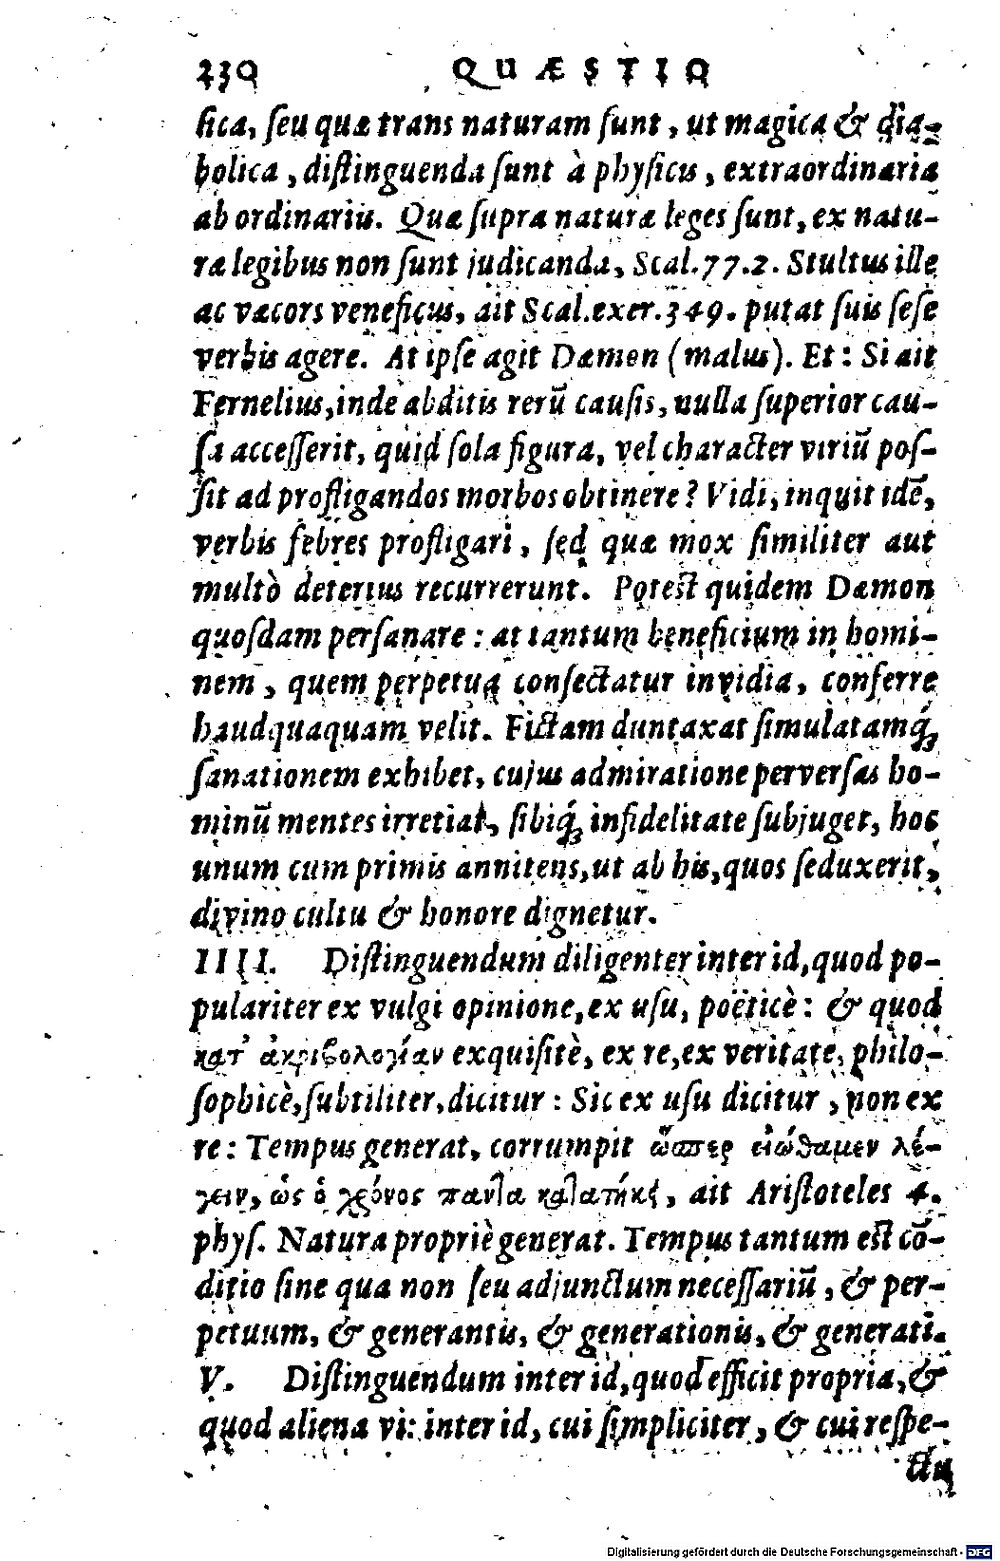 230 QUÆSTIO
sica, seu quæ trans naturam sunt, ut magica & dia-
bolica, distinguenda sunt à physicis, extraordinaria
ab ordinariis. Quæ supra naturæ leges sunt, ex natu-
ræ legibus non sunt judicanda, Scal. 77. 2. Stultus ille
ac væcors veneficus, ait Scal. exer. 349. putat suis sese
verbis agere. At ipse agit Dæmon (malus). Et: Si ait
Fernelius, inde abditis rerū causis, nulla superior cau-
sa accesserit, quid sola figura, vel character viriū pos-
sit ad profligandos morbos obtinere? Vidi, inquit idē,
verbis febres profligari, sed quæ mox similiter aut
multò deterius recurrerunt. Potest quidem Dæmon
quosdam persanare: at tantum beneficium in homi-
nem, quem perpetua consectatur invidia, conferre
haudquaquam velit. Fictam duntaxat simulatamq́;
sanationem exhibet, cujus admiratione perversas ho-
minū mentes irretiat, sibiq́; infidelitate subjuget, hoc
unum cum primis annitens, ut ab his, quos seduxerit,
divino cultu & honore dignetur.
IIII. Distinguendum diligenter inter id, quod po-
pulariter ex vulgi opinione, ex usu, poëticè: & quod
κατ' ἀκριβολογίαν exquisitè, ex re, ex veritate, philo-
sophicè, subtiliter, dicitur: Sic ex usu dicitur, non ex
re: Tempus generat, corrumpit ὥσπερ εἰώθαμεν λέ-
γειν, ὡς ὁ χρόνος πάντα κατατήκει, ait Aristoteles 4.
phys. Natura propriè generat. Tempus tantum est cō-
ditio sine qua non seu adjunctum necessariū, & per-
petuum, & generantis, & generationis, & generati.
V. Distinguendum inter id, quod efficit propria, &
quod aliena vi: inter id, cui simpliciter, & cui respe-
ctu
Digitalisierung gefördert durch die Deutsche Forschungsgemeinschaft - DFG